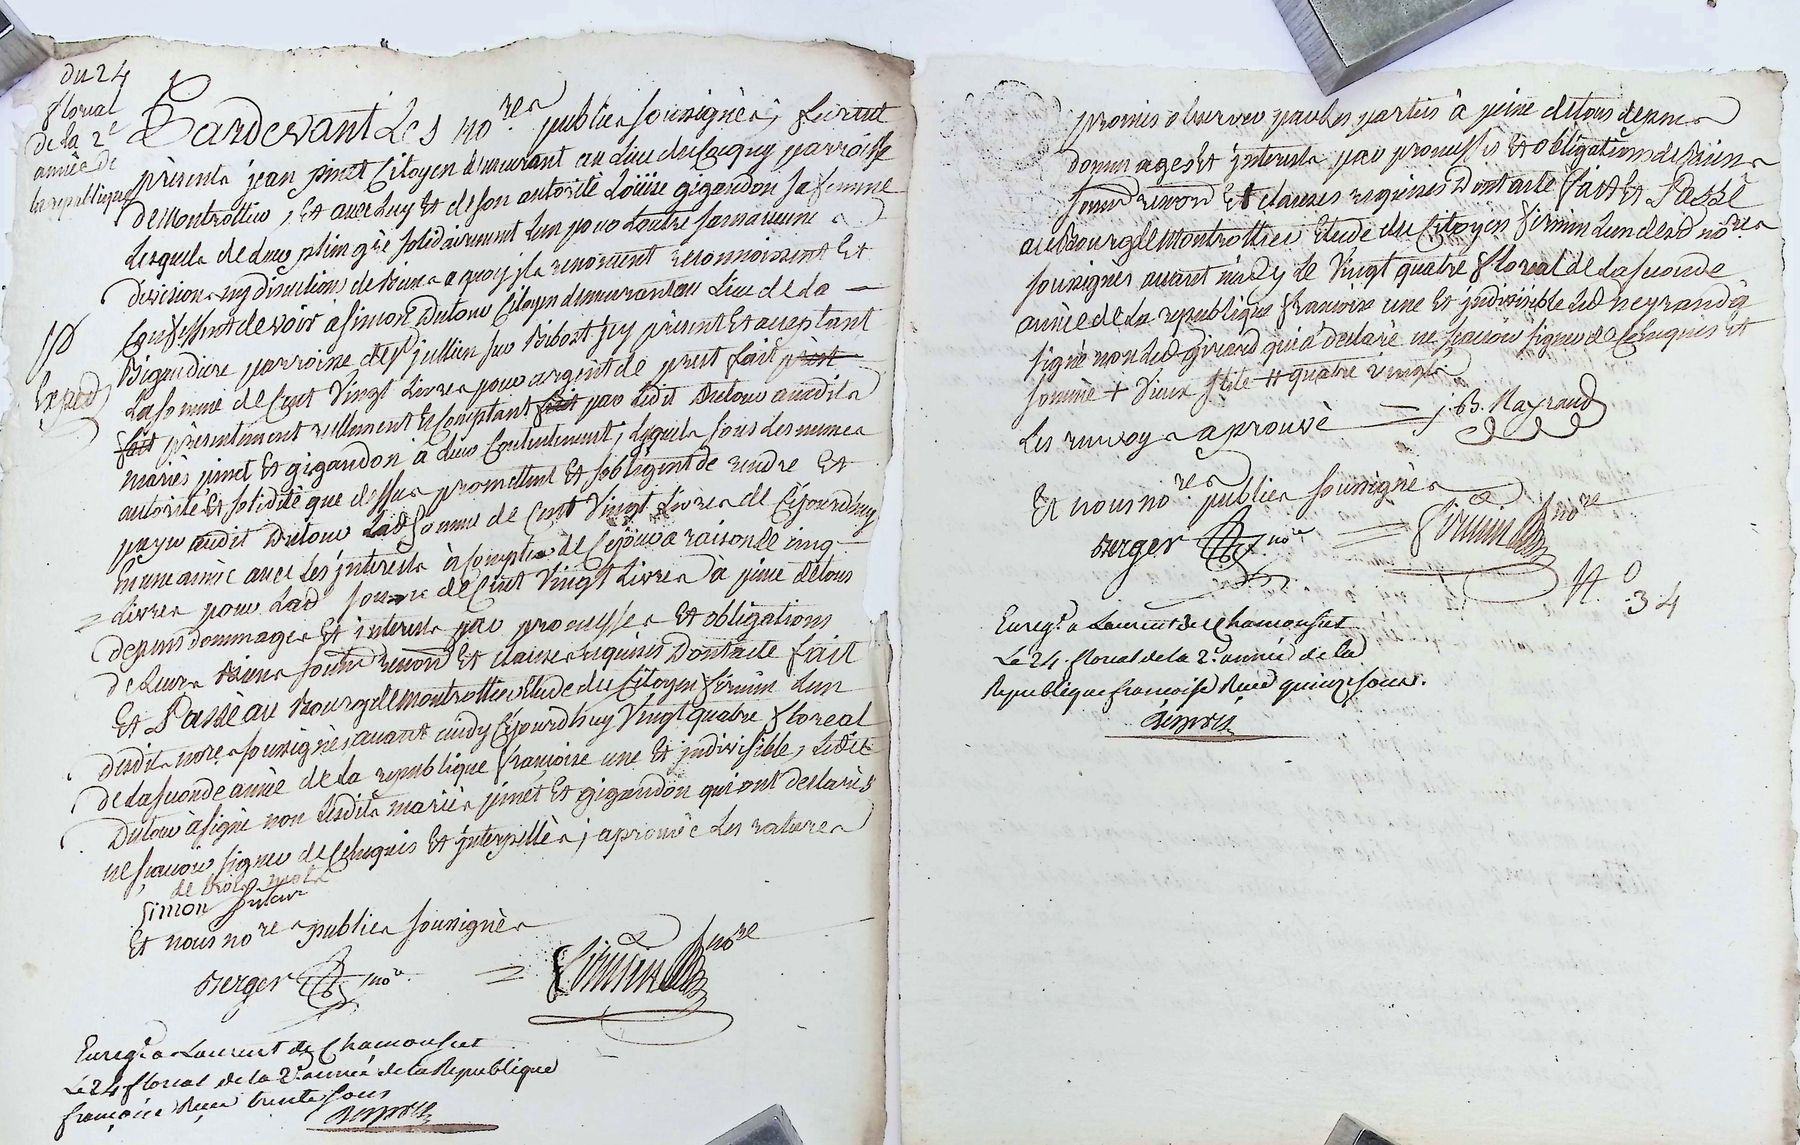 du 24
floreal
de la 2e
année de
la republique
Pardevant Les nores publics soussignés, furent
présents jean pinet Citoyen demeurant au lieu du Cugny parroisse
de Montrottier, Et avec luy Et de son autorité Loüise gigandon sa femme
Lesquels de leur plein gré solidairement l'un pour l'autre sans aucune
division ny discutions de Biens a quoy ils renoncent reconnoissent Et
Confessent devoir a simon Dutour Citoyen demeurant au Lieu de la
Bigaudiere parroisse de st jullien sur Bibost icy présent Et aceptant
La somme de Cent Vingt Livres pour argent de prest fait
présentement reellement Et Comptant par Ledit Dutour auxdits
mariés pinet Et gigandon à leur Contentement, Lesquels sous Les memes
autorité Et solidité que dessus promettent Et s'obligent de rendre Et
payer audit Dutour Lad. somme de Cent Vingt Livres de Cejourdhuy
en une année avec Les jnterests à Compter de Cejour a raison de cinq
Livres pour Lad. somme de Cent Vingt Livres à peine de tous
depens dommages Et jnterests par promesses Et obligations
de Leurs Biens soum. renon. Et clauses requises Dont acte fait
Et Passé au Bourg de Montrottier Etude du Citoyen firmin L'un
desdits nores soussignés avant midy Cejourdhuy Vingt quatre floreal
de la seconde année de la republique françoise une Et jndivisible, Ledit
Dutour à signé non Lesdits mariés pinet Et gigandon qui ont declarés
ne sçavoir signer de Ce Enquis Et jnterpellés, aprouvé Les ratures
de trois mots
simon Dutour
Et nous nores publics soussignés
Berger nore
= firmin nore
Exped
Enregt. a Laurent de Chamousset
Le 24 floreal de la 2e année de la Republique
françoise Reçu trente sous
promis observer par les parties à peine de tous depens
dommages Et jnterests par promesses Et obligations de Biens
soum. renon. Et clauses requises Dont acte fait Et Passé
au Bourg de Montrottier Etude du Citoyen firmin L'un desd. nores
soussignés avant midy Le Vingt quatre floreal de la seconde
année de la republique françoise une Et jndivisible Led. neyrand a
signé non Led. girard qui à declaré ne sçavoir signer de Ce Enquis et
sommé + Vieux stile # quatre vingts
Les renvoys aprouvé = j. B. Nayrand
Et nous nores publics soussignés
Berger nore
= firmin nore
N.o 34
Enregt. a Laurent de Chamousset
Le 24 floreal de la 2e année de la
Republique françoise Reçu quinze sous.